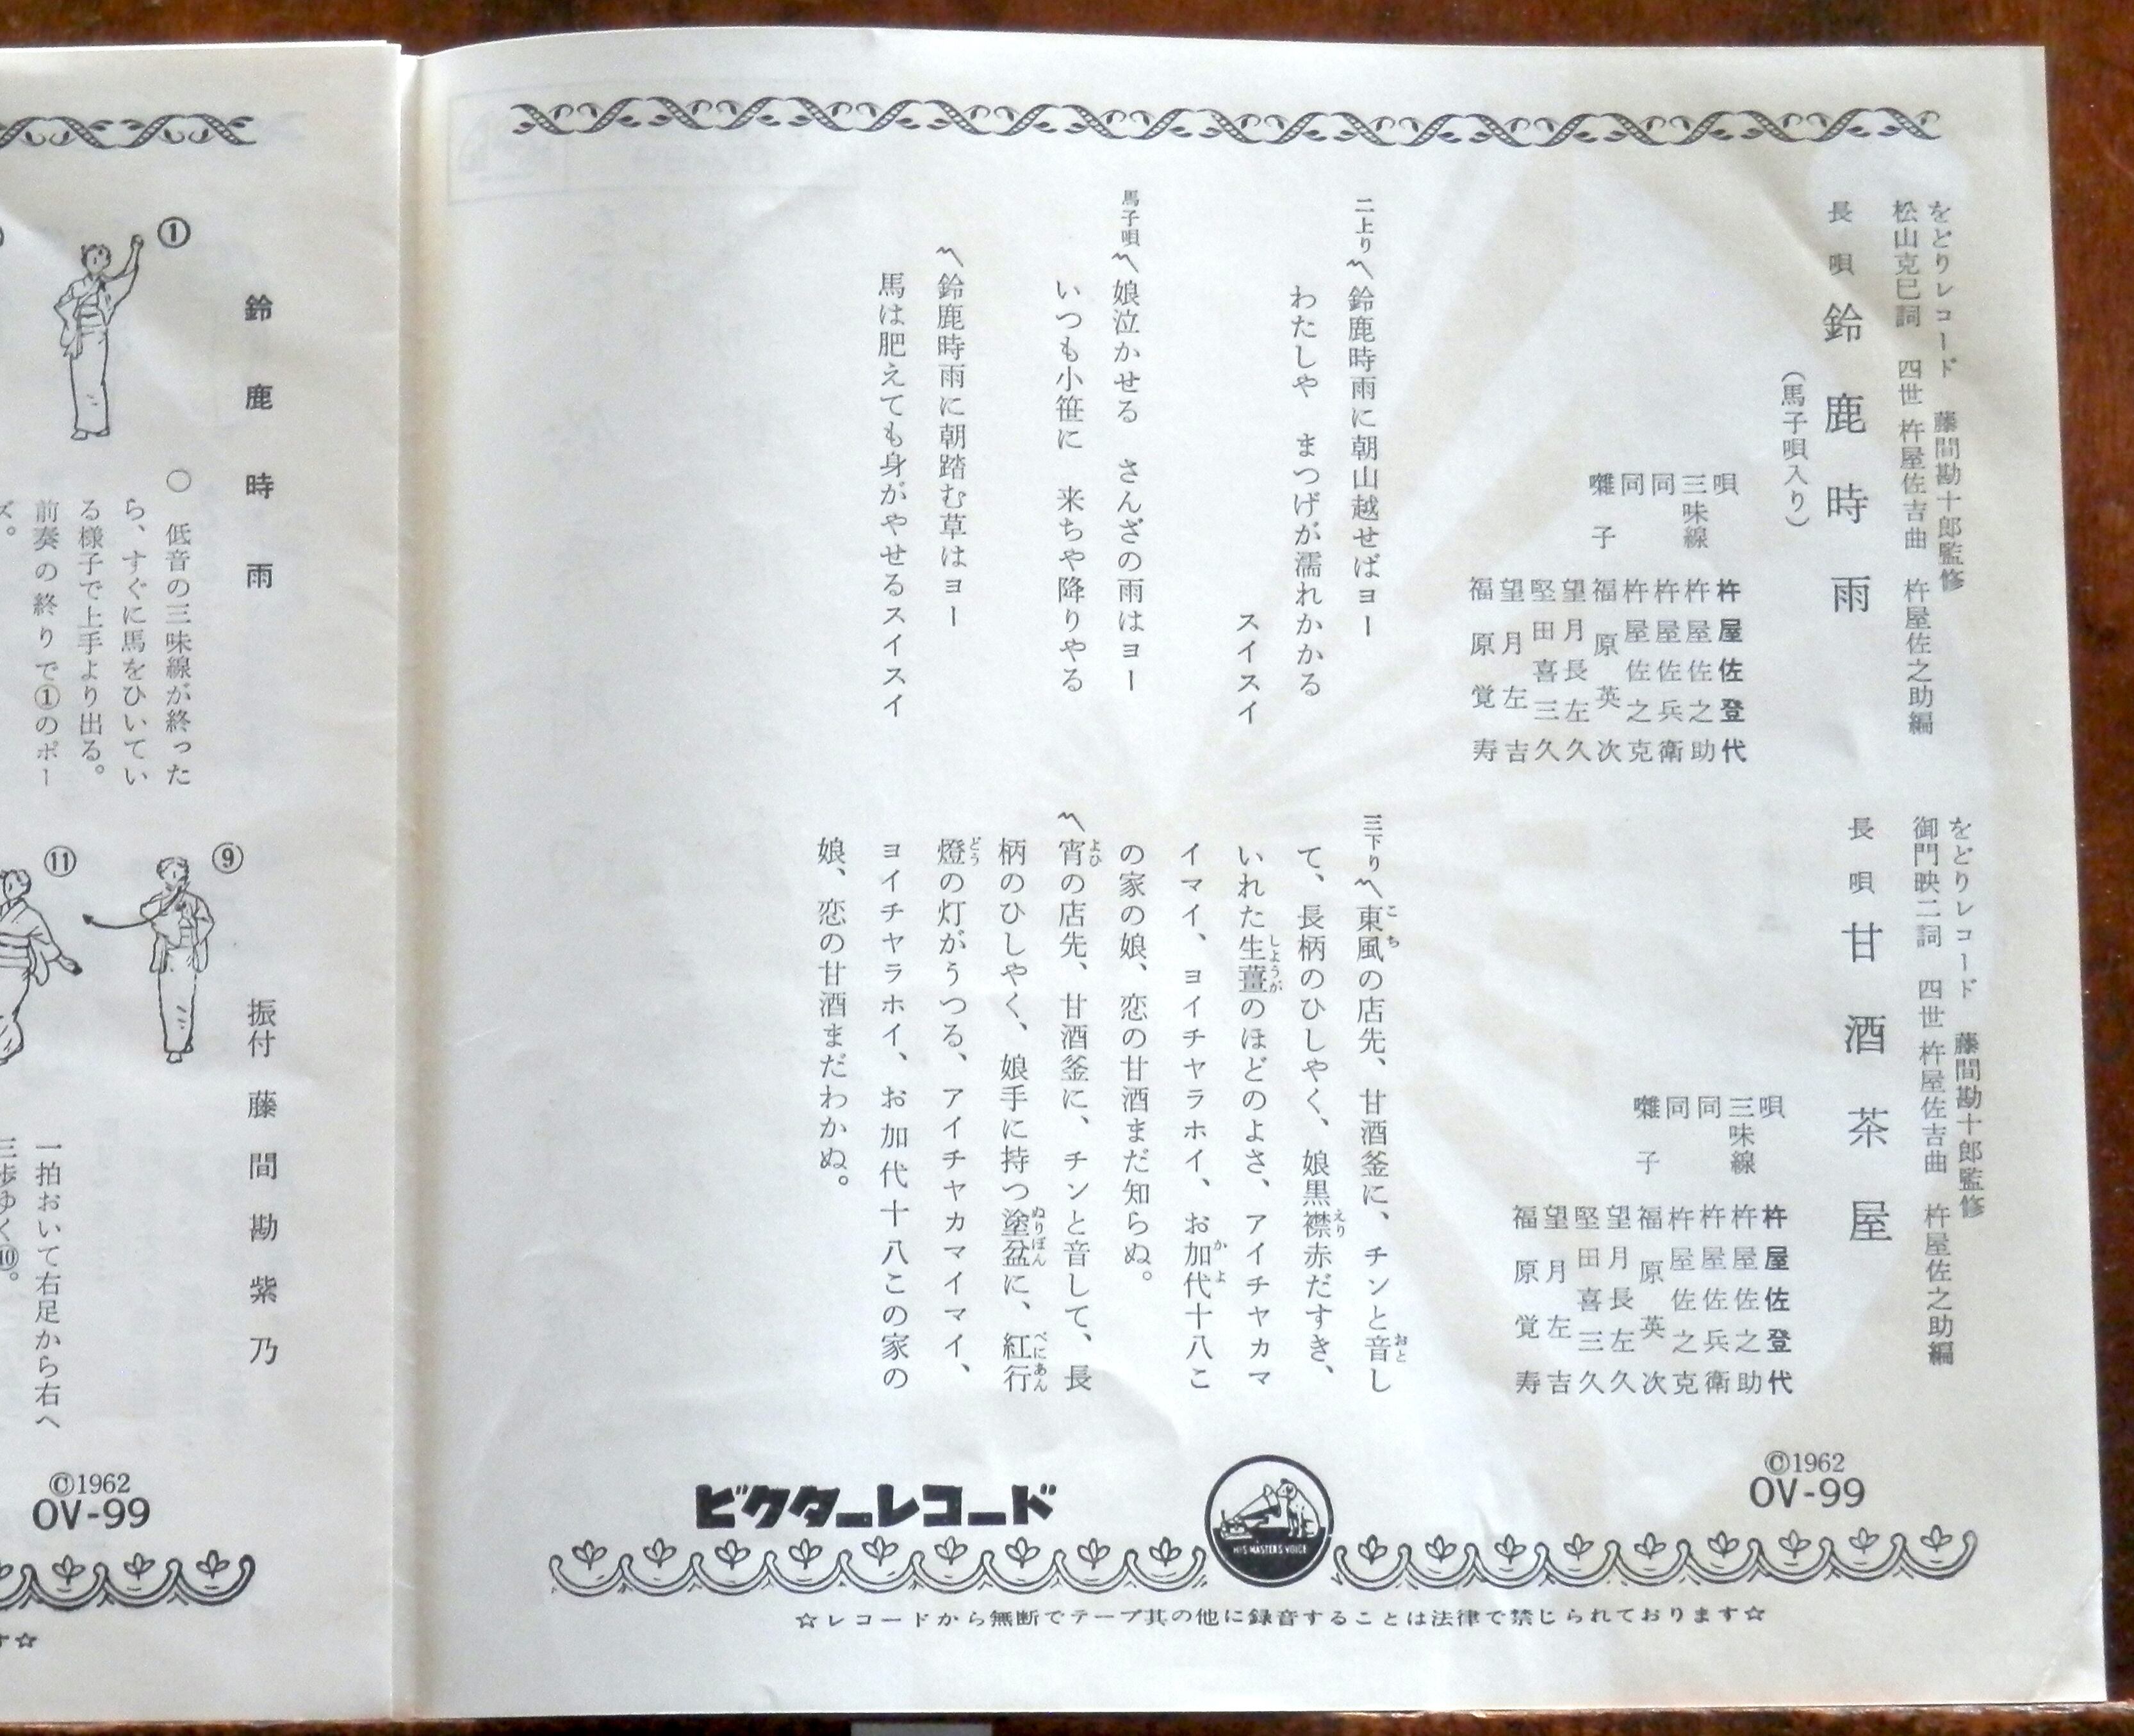 をどりレコード 藤間勘十郎監修
松山克巳詞 四世 杵屋佐吉曲 杵屋佐之助編
長唄 鈴鹿時雨
(馬子唄入り)
唄 杵屋佐登代
三味線 杵屋佐之助
同 杵屋佐兵衛
同 杵屋佐之克
囃子 福原英次
望月長左久
堅田喜三久
望月左吉
福原覚寿
二上り〽鈴鹿時雨に朝山越せばヨー
わたしや まつげが濡れかかる
スイスイ
馬子唄〽娘泣かせる さんざの雨はヨー
いつも小笹に 来ちや降りやる
〽鈴鹿時雨に朝踏む草はヨー
馬は肥えても身がやせるスイスイ
をどりレコード 藤間勘十郎監修
御門映二詞 四世 杵屋佐吉曲 杵屋佐之助編
長唄 甘酒茶屋
唄 杵屋佐登代
三味線 杵屋佐之助
同 杵屋佐兵衛
同 杵屋佐之克
囃子 福原英次
望月長左久
堅田喜三久
望月左吉
福原覚寿
三下り〽東風の店先、甘酒釜に、チンと音し
て、長柄のひしやく、娘黒襟赤だすき、
いれた生薑のほどのよさ、アイチヤカマ
イマイ、ヨイチヤラホイ、お加代十八こ
の家の娘、恋の甘酒まだ知らぬ。
〽宵の店先、甘酒釜に、チンと音して、長
柄のひしやく、娘手に持つ塗盆に、紅行
燈の灯がうつる、アイチヤカマイマイ、
ヨイチヤラホイ、お加代十八この家の
娘、恋の甘酒まだわかぬ。
©1962
OV-99
HIS MASTER'S VOICE
ビクターレコード
☆レコードから無断でテープ其の他に録音することは法律で禁じられております☆
鈴鹿時雨
振付 藤間勘紫乃
①
○ 低音の三味線が終った
ら、すぐに馬をひいてい
る様子で上手より出る。
前奏の終りで①のポー
ズ。
⑨
⑪
一拍おいて右足から右へ
三歩ゆく⑩。
©1962
OV-99
す☆